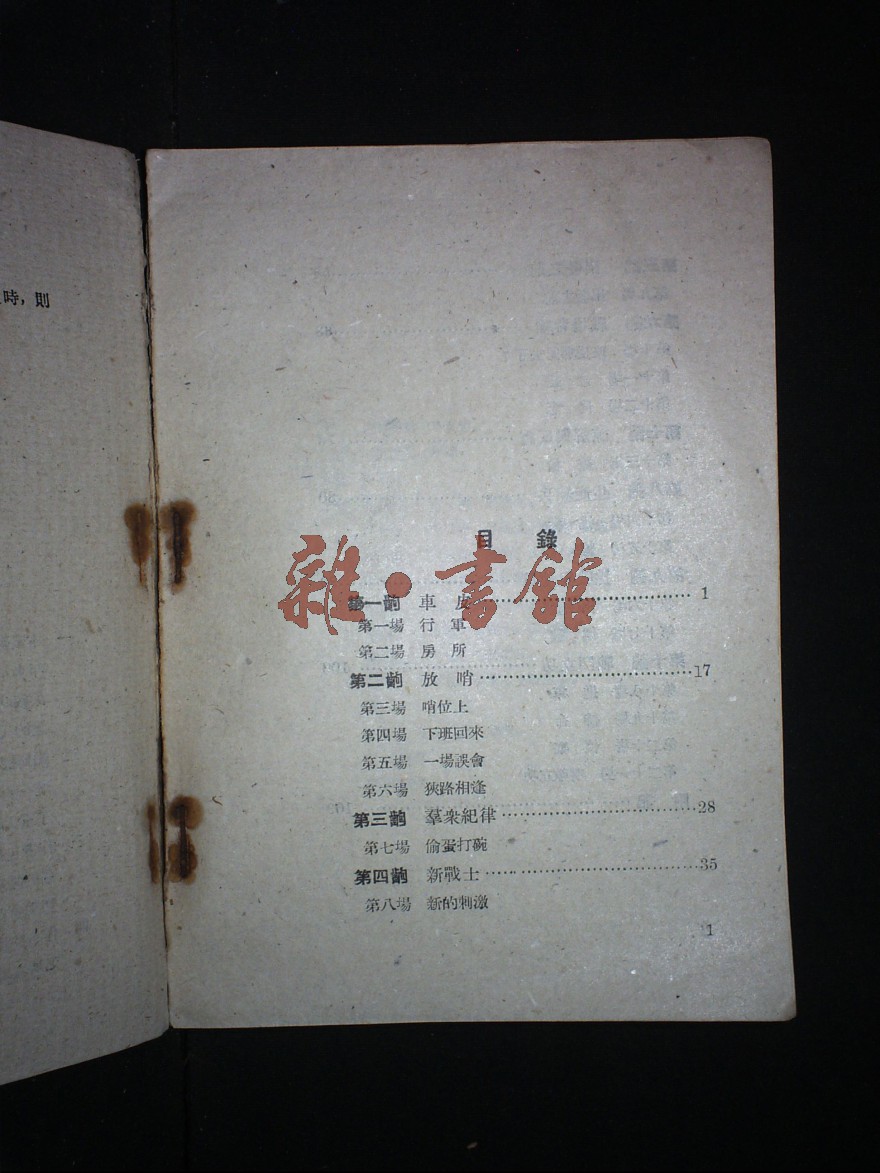 時，則
目錄
第一齣 車皮 1
第一場 行軍
第二場 房所
第二齣 放哨 17
第三場 哨位上
第四場 下班回來
第五場 一場誤會
第六場 狹路相逢
第三齣 羣衆紀律 28
第七場 偷蛋打碗
第四齣 新戰士 35
第八場 新的刺激
1
雜·書館